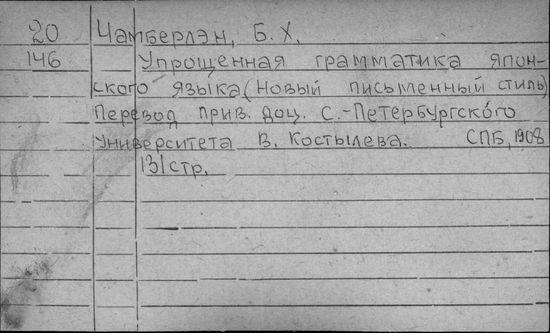 20 Чамберлэн, Б. Х.
146 Упрощенная грамматика япон-
ского языка (Новый письменный стиль)
Перевод прив. доц. С.-Петербургского
Университета В. Костылева. СПБ, 1908
131 стр.